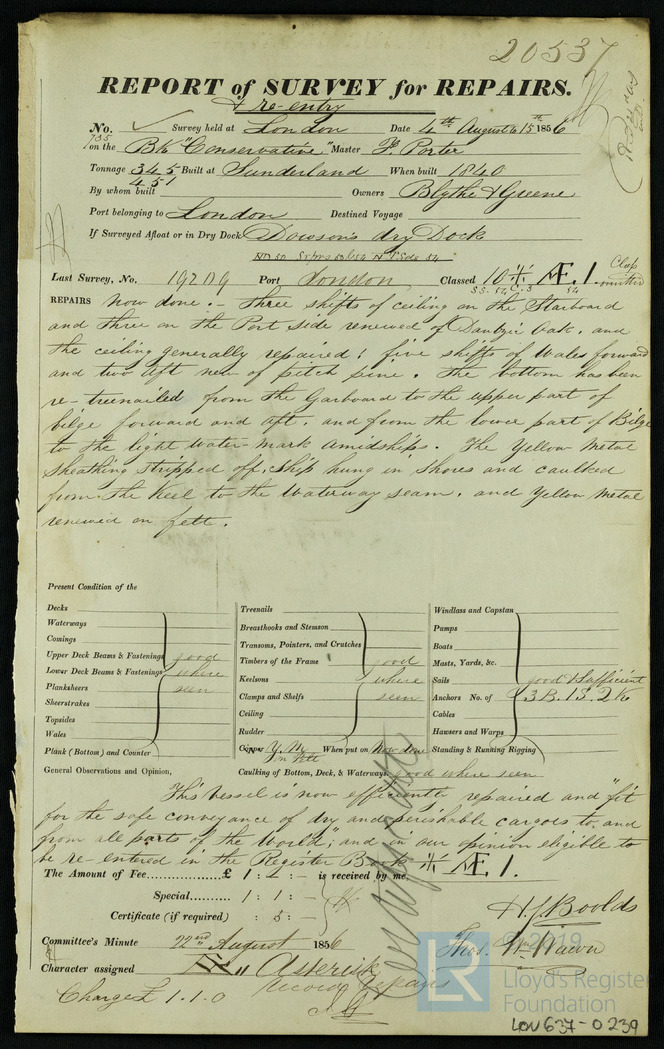 20537
REPORT of SURVEY for REPAIRS.
& re-entry
No. 735 Survey held at London Date 4th August & 15th 1856
on the Bk "Conservative" Master F. Porter
Tonnage 345 451 Built at Sunderland When built 1840
By whom built Owners Blythe & Greene
Port belonging to London Destined Voyage
If Surveyed Afloat or in Dry Dock Dowson's dry Dock
Last Survey, No. 19209 Port London Classed 10 Æ 1. Clasp omitted
REPAIRS now done. - Three shifts of ceiling on the Starboard
and three on the Port side renewed of Dantzic oak, and
the ceiling generally repaired; five shifts of Wales forward
and two aft new of pitch pine. The bottom has been
re-treenailed from the Garboard to the upper part of
bilge forward and aft, and from the lower part of Bilge
to the light water-mark amidships. The Yellow Metal
Sheathing stripped off, ship hung in shores and caulked
from the Keel to the Waterway seam, and Yellow Metal
renewed on felt.
Present Condition of the
Decks
Waterways
Comings
Upper Deck Beams & Fastenings good
Lower Deck Beams & Fastenings where
Planksheers seen
Sheerstrakes
Topsides
Wales
Plank (Bottom) and Counter
Treenails
Breasthooks and Stemson
Transoms, Pointers, and Crutches
Timbers of the Frame good
Keelsons where
Clamps and Shelfs seen
Ceiling
Rudder
Copper Y. M. on felt When put on Now done
Windlass and Capstan
Pumps
Boats
Masts, Yards, &c.
Sails good & sufficient
Anchors No. of 3 B. 1 S. 2 K
Cables
Hawsers and Warps
Standing & Running Rigging
General Observations and Opinion, Caulking of Bottom, Deck, & Waterways good where seen
This vessel is now efficiently repaired and "fit
for the safe conveyance of dry and perishable cargoes to, and
from all parts of the World"; and in our opinion eligible to
be re-entered in the Register Book Æ 1.
The Amount of Fee......... £ 1 : 1 : - is received by me,
Special......... 1 : 1 : -
Certificate (if required) : 5 : -
H. J. Boolds
Committee's Minute 22nd August 1856
Character assigned Æ 1 Asterisk
record repairs
Charge £ 1.1.0
© 2019
LR
Lloyd's Register
Foundation
LON 637-0239